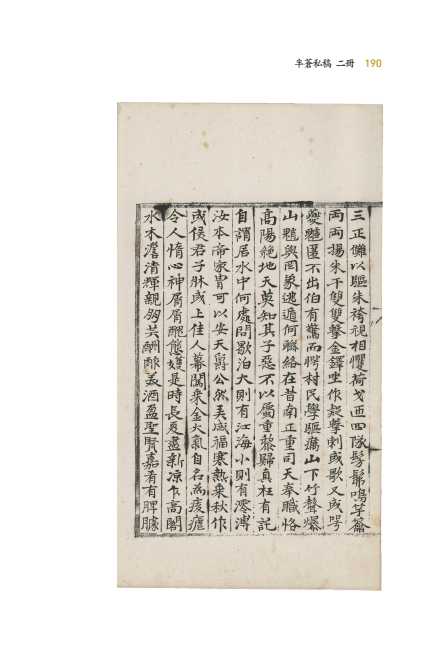 半蒼私稿 二冊 190
三正儺以驅朱裿視相懼荷戈西四隊髣髴鳴竽籥
兩兩揚朱干雙雙擊金鐸坐作起擊刺或歌又或咢
夔魖匿不出伯有驚而愕村民學驅癘山下竹聲爆
山魈與罔象遞遁何聯絡在昔南正重司天奉職恪
高陽絶地天莫知其子惡不以屬重黎歸真枉有記
自謂居水中何處問歇泊大則有江海小則有澪溥
汝本帝家胄可以安天爵公然美威福寒熱乘秋作
或侯君子牀或上佳人幕闖來金火氣自名為痎瘧
令人惰心神屑屑醒態嬳是時長夏盡新凉乍高閣
水木澹清輝親朋共酬酢美酒盈聖賢嘉肴有脾臄